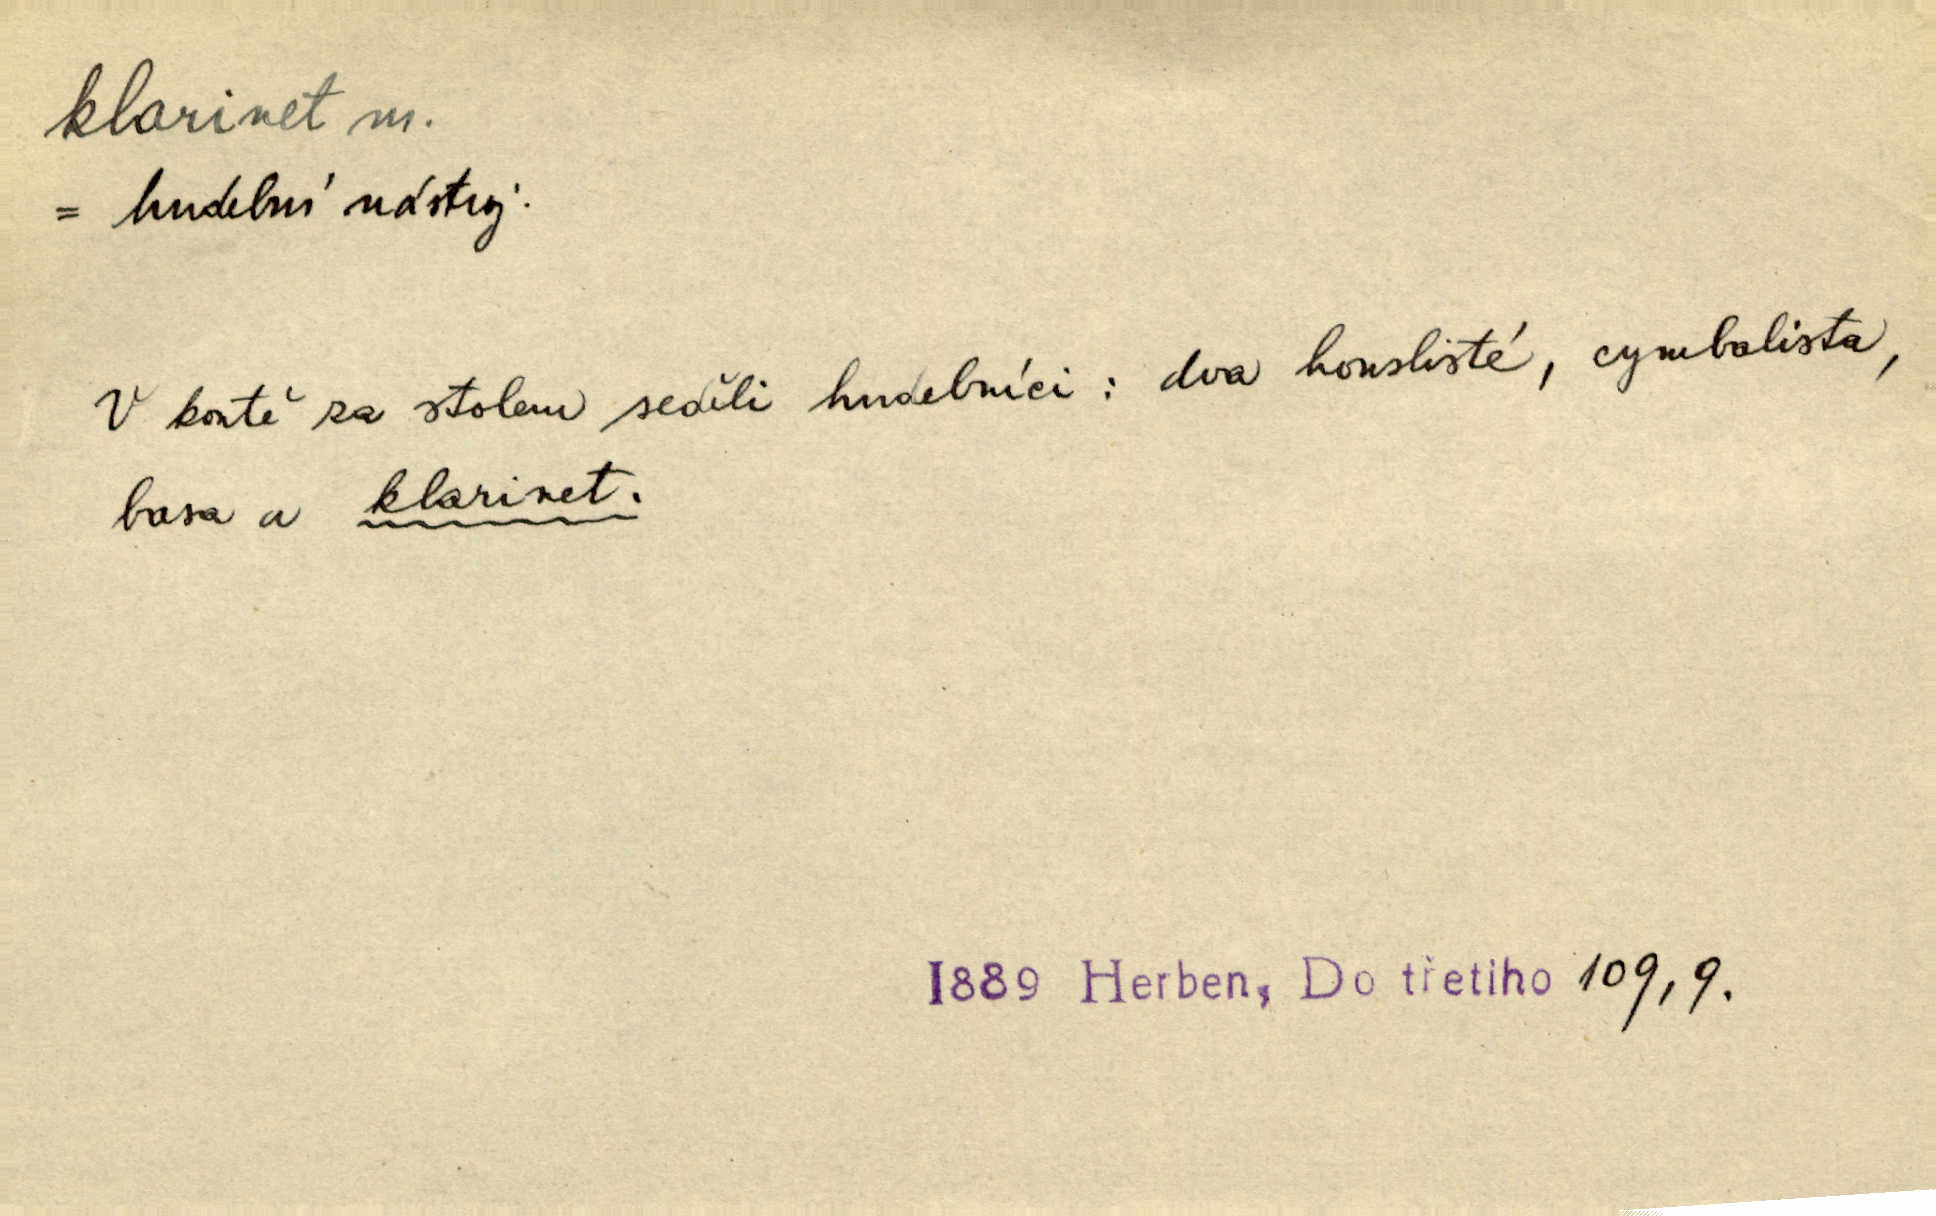 klarinet m.
= hudební nástroj.
V koutě za stolem seděli hudebníci : dva houslisté, cymbalista,
basa a klarinet.
1889 Herben, Do třetiho 109, 9.